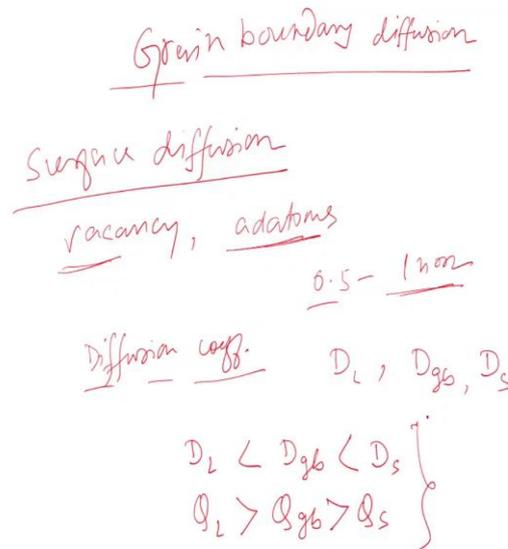 Grain boundary diffusion
Surface diffusion
vacancy, adatoms
0.5 - 1 nm
Diffusion coeff. D_L, D_gb, D_s
D_L < D_gb < D_s
Q_L > Q_gb > Q_s